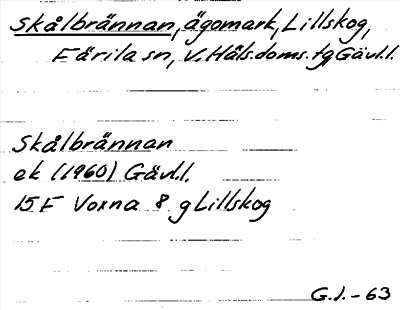 Skålbrännan, ägomark, Lillskog,
Färila sn, V. Häls. doms. tg, Gävl.l.
Skålbrännan
ek (1960) Gävl.l.
15 F Voxna 8 g Lillskog
G.J.-63